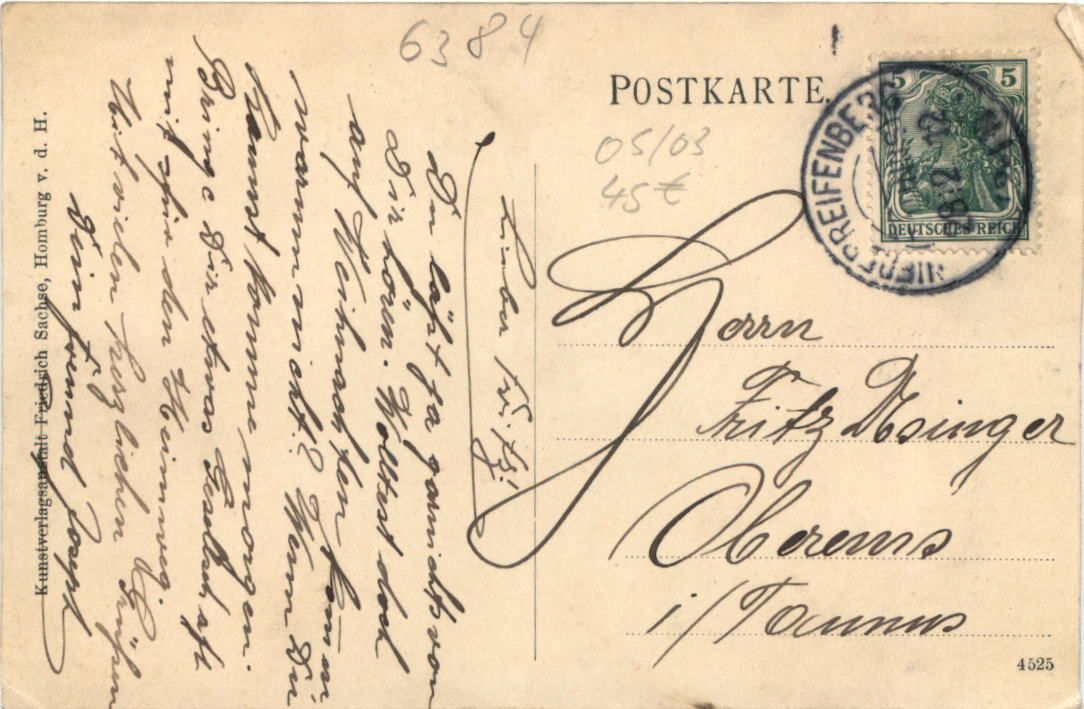 6384
POSTKARTE.
05/03
45€
5 5
DEUTSCHES REICH
NIEDERREIFENBERG
Herrn
Fritz Usinger
Oberems
i/Taunus
4525
Lieber Fritz!
Du läßt ja garnichts von
Dir hören. Wolltest doch
auf Weihnachten kommen
warum nicht? Wenn Du
kannst komme morgen.
Bringe Dir etwas Gesellschaft
mit für den Heimweg.
Mit vielen herzlichen Grüßen
Dein Freund Joseph
Kunstverlagsanstalt Friedrich Sachse, Homburg v. d. H.